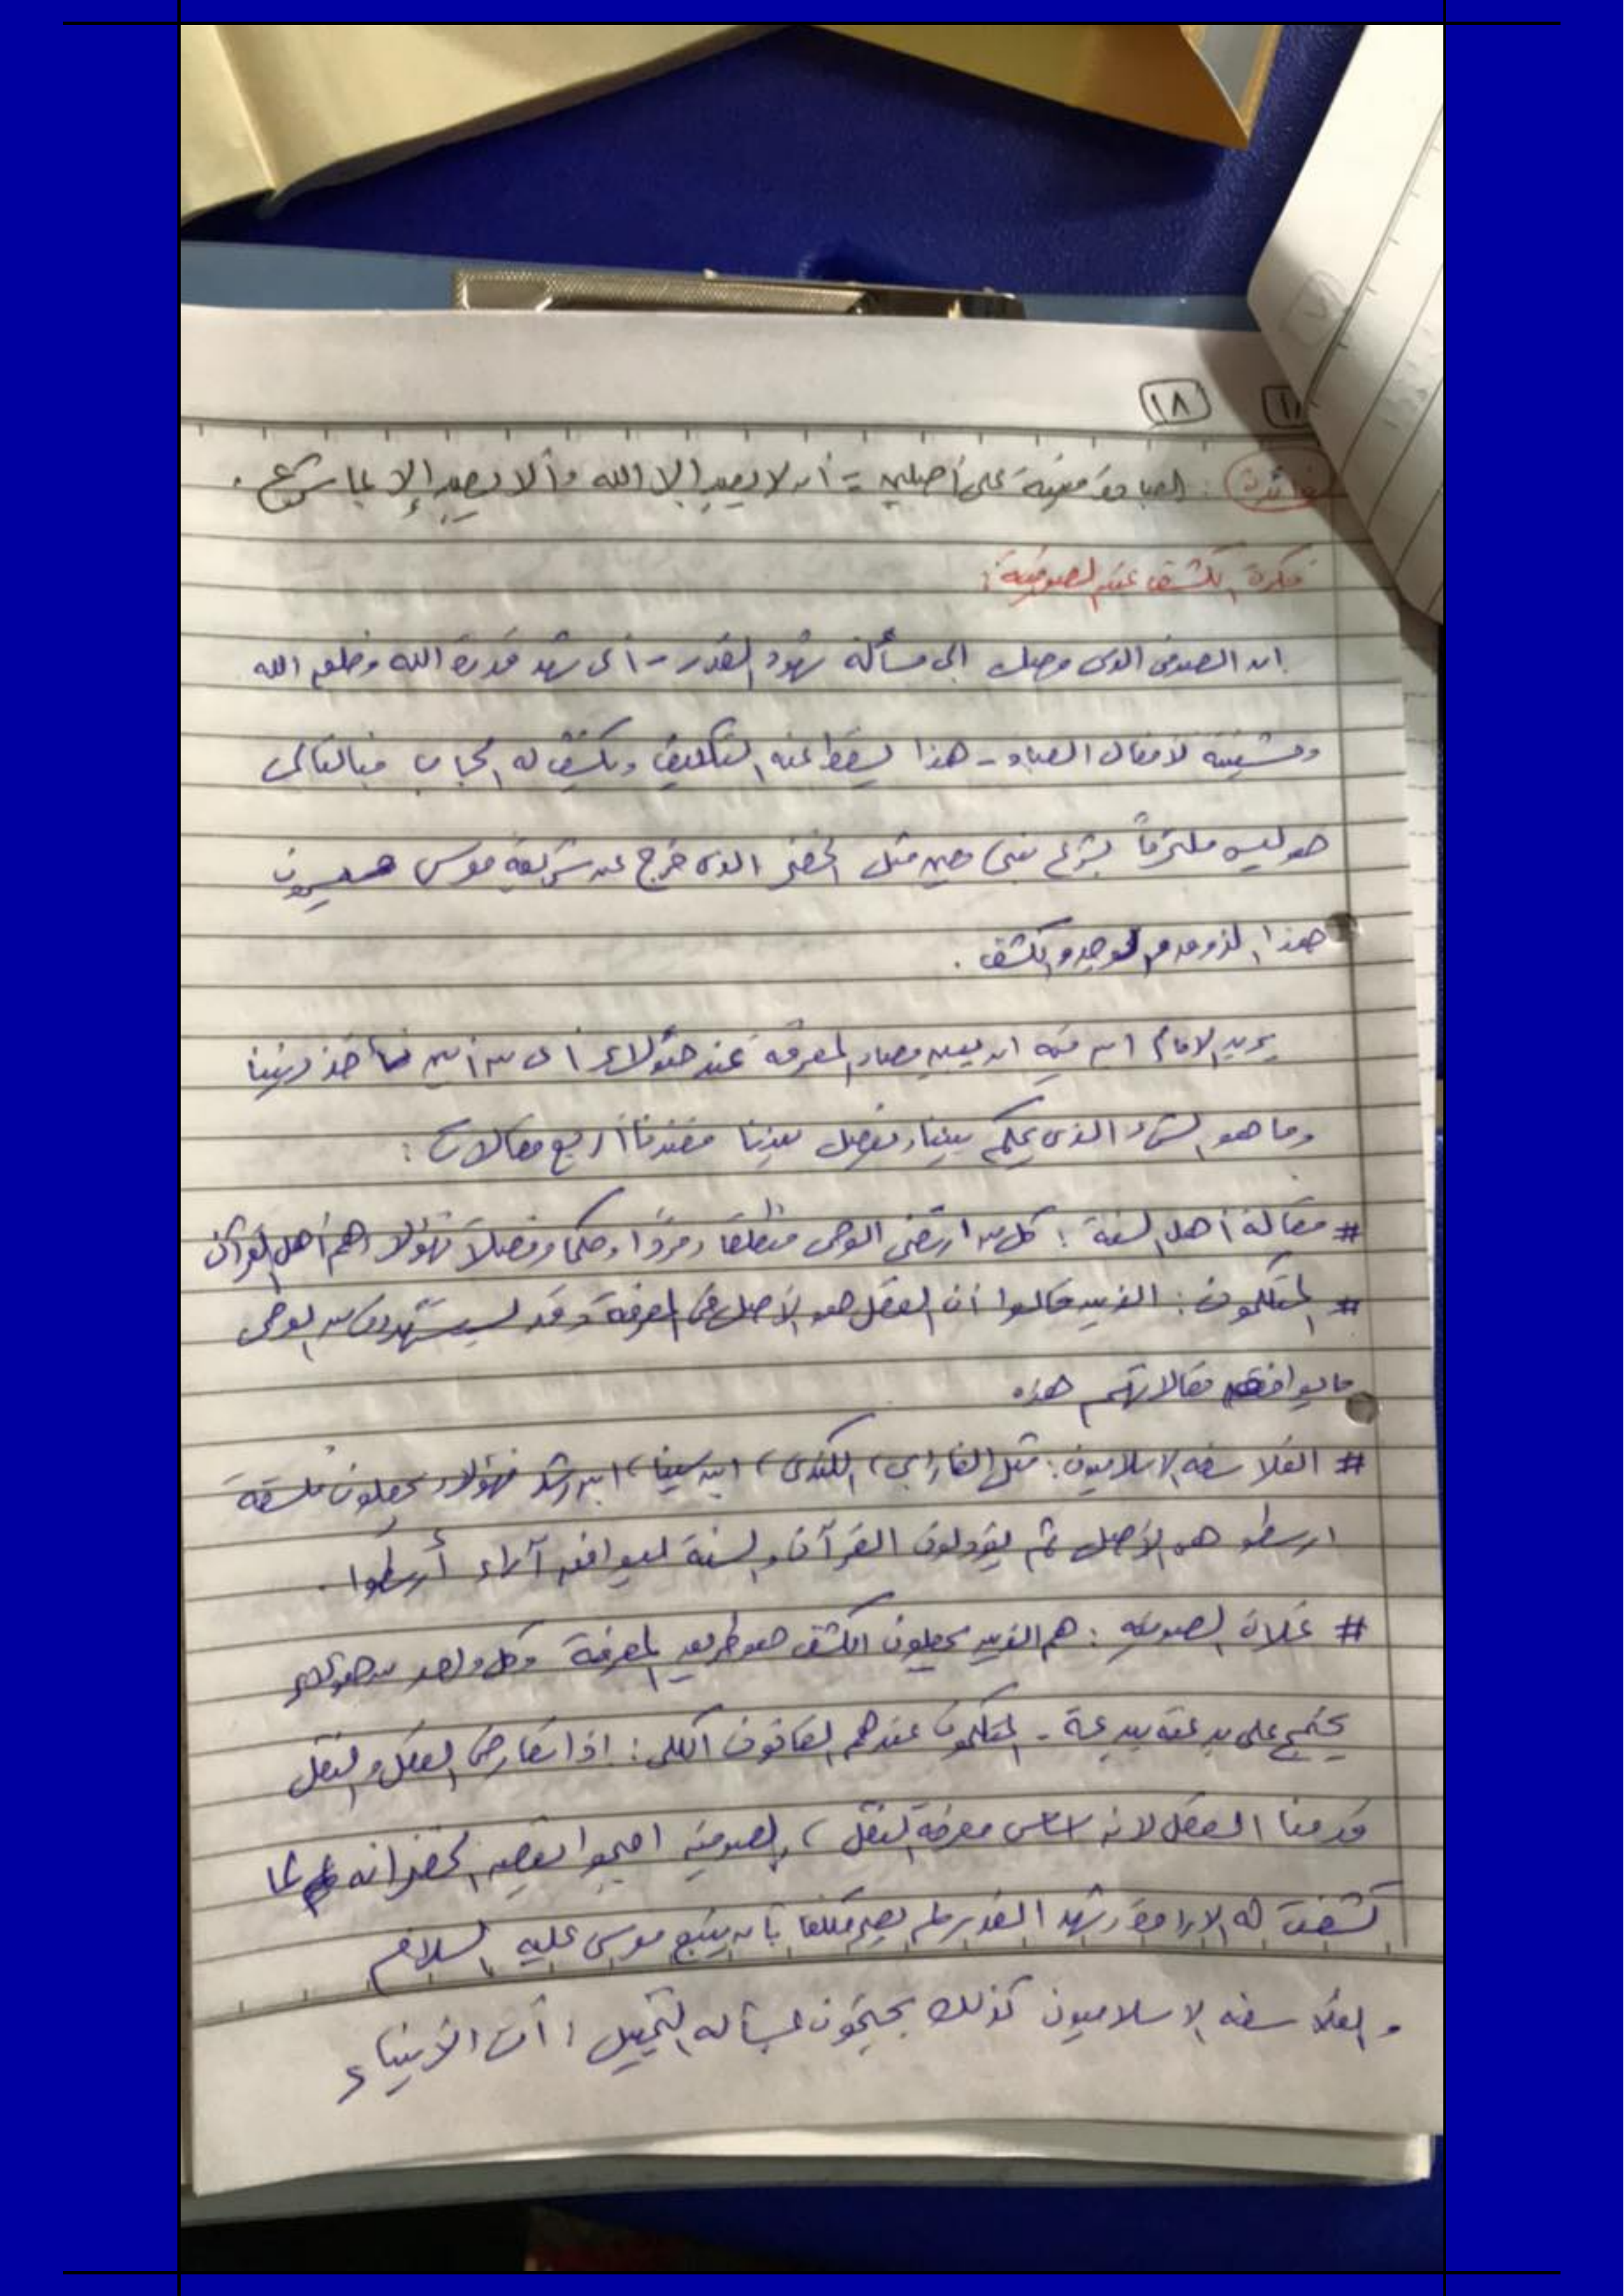 ١٨
فائدة : العبادة مبنية على أصلين = أن لا يعبد إلا الله وألا يعبد إلا بما شرع .
فكرة الكشف عند الصوفية :
ان الصوفى الذى وصل الى مسألة شهود القدر - أى شهد قدرة الله وخلق الله
ومشيئة لأفعال العباد - هذا يسقط عنه التكليف ويكشف له الحجاب فبالتالى
هو ليس ملتزماً بشرع نبى مثل الخضر الذى خرج عن شريعة موسى
هذا الذوق و الوجد و الكشف .
يريد الامام ان يبين مصادر المعرفة عند هؤلاء أى من أين نأخذ ديننا
وما هو الشىء الذى يحكم بيننا ويفصل بيننا فعندنا أربع مقالات :
# مقالة أهل السنة : كل من ارتضى الوحى منطلقا ومردا وحكما وفصلا فهؤلاء هم أهل القرآن
# المتكلمون : الذين قالوا أن العقل هو الأصل فى المعرفة وقد يستشهدون من الوحى
ما يوافق مقالاتهم هذه
# الفلاسفه الاسلاميون : مثل الفارابى ، الكندى ، ابن سينا ، ابن رشد فهؤلاء يجعلون فلسفة
ارسطو هى الأصل ثم يؤولون القرآن و السنة ليوافق آراء أرسطوا .
# غلاة الصوفيه : هم الذين يجعلون الكشف هو طريق المعرفة وكل واحد من هؤلاء
يحتج على بدعته ببدعة - المتكلمون عندهم القانون الكلى : اذا تعارض العقل و النقل
قدمنا العقل لانه اساس معرفة النقل ، والصوفيه احتجوا بقصة الخضر انه لما
كشفت له الارادة وشهد القدر لم يصر مكلفا بأن يتبع موسى عليه السلام
و الفلاسفه الاسلاميون كذلك يحتجون بمسألة التخييل : أن الأنبياء